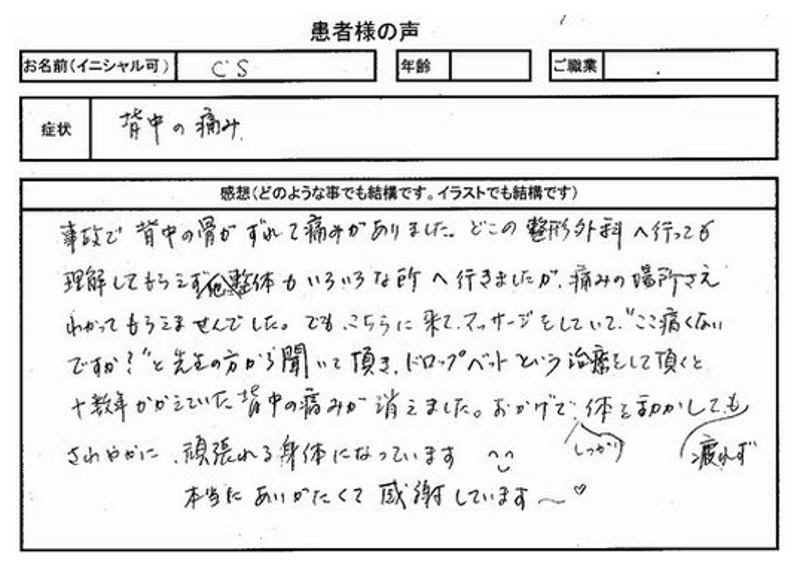 患者様の声
お名前(イニシャル可) CS 年齢 ご職業
症状 背中の痛み
感想(どのような事でも結構です。イラストでも結構です)
事故で背中の骨がずれて痛みがありました。どこの整形外科へ行っても
理解してもらえず他整体もいろいろな所へ行きましたが、痛みの場所さえ
わかってもらえませんでした。でも、こちらに来て、マッサージをしていて、"ここ痛くない
ですか?"と先生の方から聞いて頂き、ドロップベットという治療をして頂くと
十数年かかえていた背中の痛みが消えました。おかげで、体を動かしても
さわやかに、頑張れる身体になっています
しっかり
疲れず
本当にありがたくて感謝しています〜♡